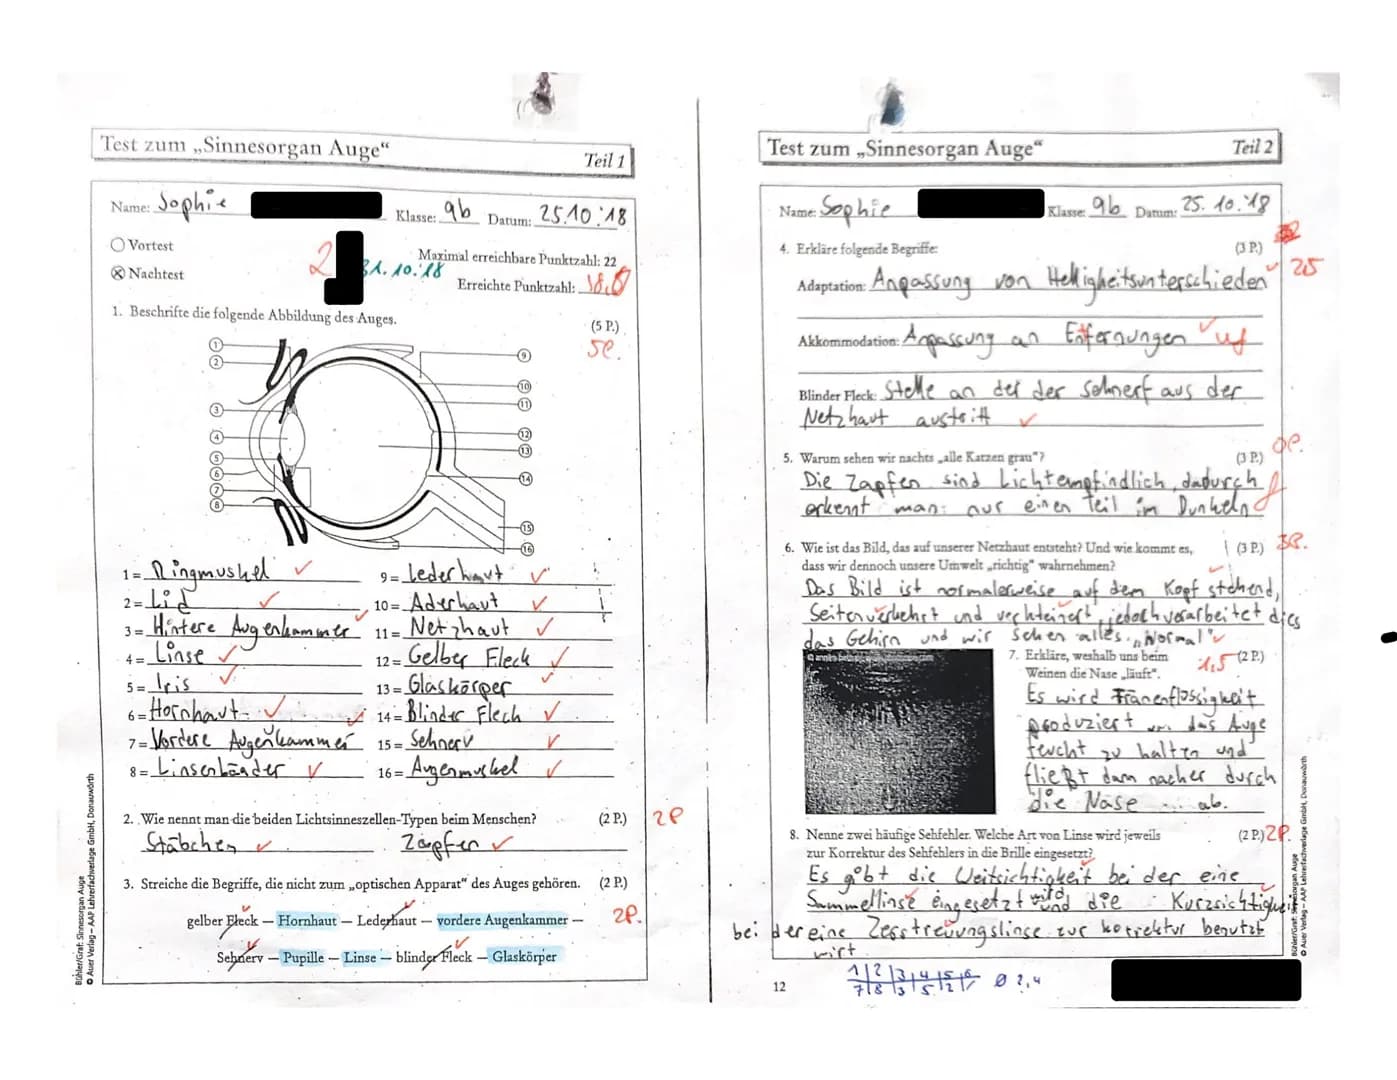 Test zum „Sinnesorgan Auge“
Teil 1
Name: Sophie
Klasse: 9b Datum: 25.10.'18
Vortest
Nachtest
2
31.10.'18
Maximal erreichbare Punktzahl: 22
Erreichte Punktzahl:
1. Beschrifte die folgende Abbildung des Auges.
(5 P.)
5P.
1
2
3
4
5
6
7
8
9
10
11
12
13
14
15
16
1 = Ringmuskel
2 = Lid
3 = Hintere Augenkammer
4 = Linse
5 = Iris
6 = Hornhaut
7 = Vordere Augenkammer
8 = Linsenbänder
9 = Lederhaut
10 = Aderhaut
11 = Netzhaut
12 = Gelber Fleck
13 = Glaskörper
14 = Blinder Fleck
15 = Sehnerv
16 = Augenmuskel
2. Wie nennt man die beiden Lichtsinneszellen-Typen beim Menschen?
(2 P.)
2P
Stäbchen Zapfen
3. Streiche die Begriffe, die nicht zum „optischen Apparat“ des Auges gehören.
(2 P.)
gelber Fleck – Hornhaut – Lederhaut – vordere Augenkammer –
2P.
Sehnerv – Pupille – Linse – blinder Fleck – Glaskörper
Bühler/Graf: Sinnesorgan Auge
© Auer Verlag – AAP Lehrerfachverlage GmbH, Donauwörth
Test zum „Sinnesorgan Auge“
Teil 2
Name: Sophie
Klasse: 9b Datum: 25.10.'18
4. Erkläre folgende Begriffe:
(3 P.)
2,5
Adaptation: Anpassung von Helligkeitsunterschieden
Akkommodation: Anpassung an Entfernungen
Blinder Fleck: Stelle an der der Sehnerf aus der
Netzhaut austritt
0P.
5. Warum sehen wir nachts „alle Katzen grau“?
(3 P.)
Die Zapfen sind Lichtempfindlich, dadurch
erkennt man nur einen Teil im Dunkeln
f
6. Wie ist das Bild, das auf unserer Netzhaut entsteht? Und wie kommt es,
(3 P.)
3P.
dass wir dennoch unsere Umwelt „richtig“ wahrnehmen?
Das Bild ist normalerweise auf dem Kopf stehend,
Seitenverkehrt und verkleinert, jedoch verarbeitet dies
das Gehirn und wir sehen alles „Normal“
7. Erkläre, weshalb uns beim
1,5
(2 P.)
Weinen die Nase „läuft“.
Es wird Tränenflüssigkeit
produziert um das Auge
feucht zu halten und
fließt dann nacher durch
die Nase ab.
8. Nenne zwei häufige Sehfehler. Welche Art von Linse wird jeweils
(2 P.)
2P.
zur Korrektur des Sehfehlers in die Brille eingesetzt?
Es gibt die Weitsichtigkeit bei der eine
Sammellinse eingesetzt wird und die Kurzsichtigkeit
bei der eine Zerstreuungslinse zur korrektur benutzt
wirt.
12
1 2 3 4 5 6
7 8 3 5 2 /
Ø 2,4
Bühler/Graf: Sinnesorgan Auge
© Auer Verlag – AAP Lehrerfachverlage GmbH, Donauwörth